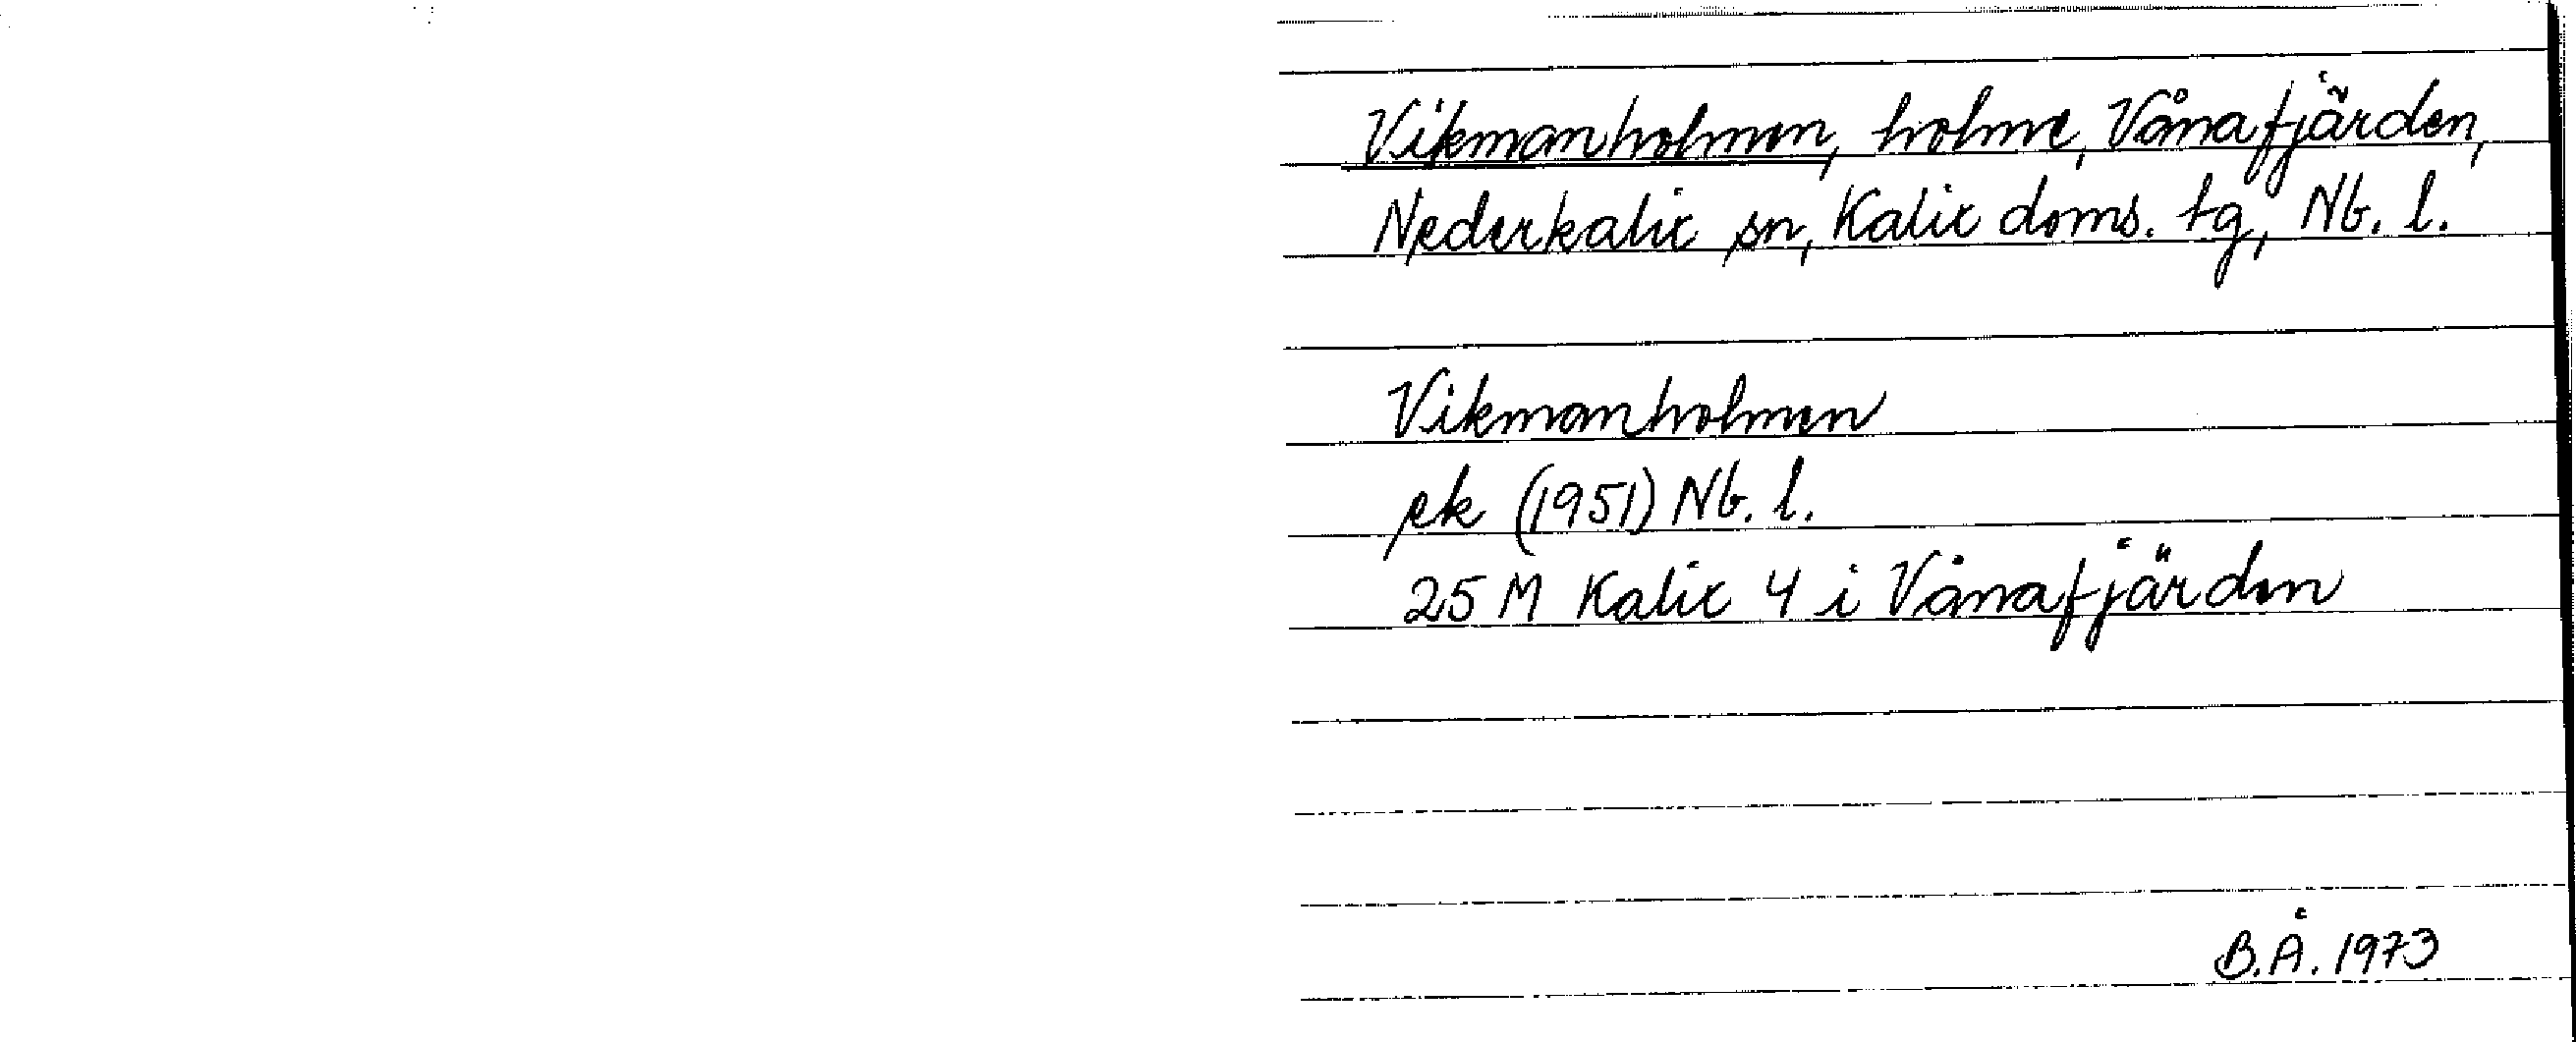 Vikmanholmen, holme, Vånafjärden,
Nederkalix sn, Kalix doms. tg, Nb. l.
Vikmanholmen
ek (1951) Nb. l.
25 M Kalix 4 i Vånafjärden
B.Å. 1973